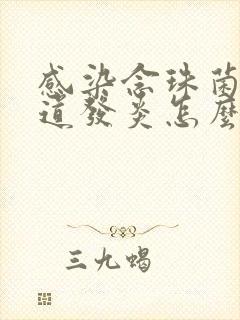 感染念珠菌
道發炎怎麼
三九蝎